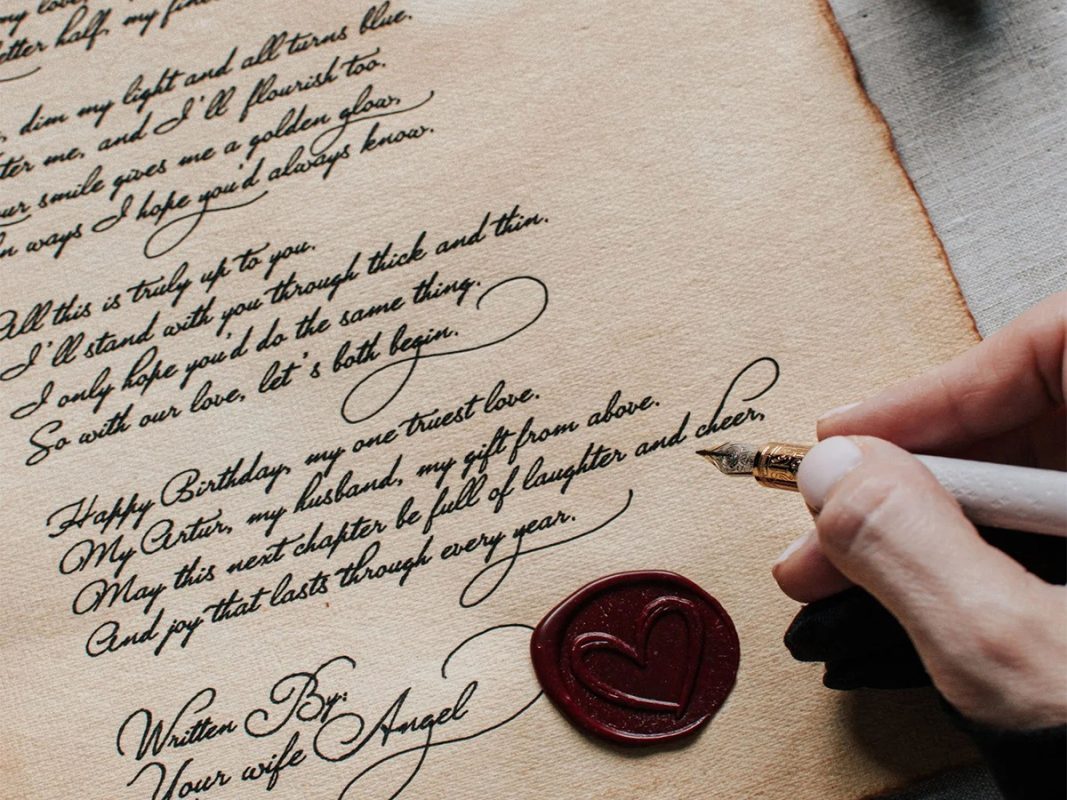 my love,
better half, my
dim my light and all turns blue.
me, and I'll flourish too.
smile gives me a golden glow,
ways I hope you'd always know.
All this is truly up to you.
I'll stand with you through thick and thin.
I only hope you'd do the same thing.
So with our love, let's both begin.
Happy Birthday, my one truest love.
My Artur, my husband, my gift from above.
May this next chapter be full of laughter and cheer,
And joy that lasts through every year.
Written By:
Your wife Angel